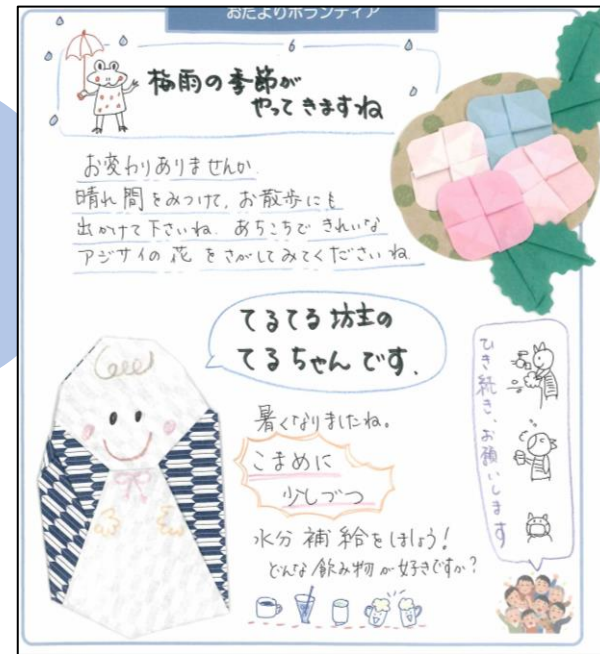 おたよりボランティア
6
梅雨の季節が
やってきますね
お変わりありませんか
晴れ間をみつけて、お散歩にも
出かけて下さいね。あちこちで きれいな
アジサイの花 をさがしてみてくださいね
てるてる坊主の
てるちゃんです.
暑くなりましたね。
こまめに
少しづつ
水分補給をしましょう!
どんな飲み物が好きですか?
ひき続き、お願いします